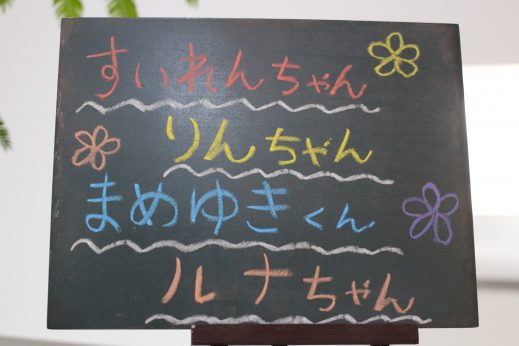 すいれんちゃん
りんちゃん
まめゆきくん
ルナちゃん